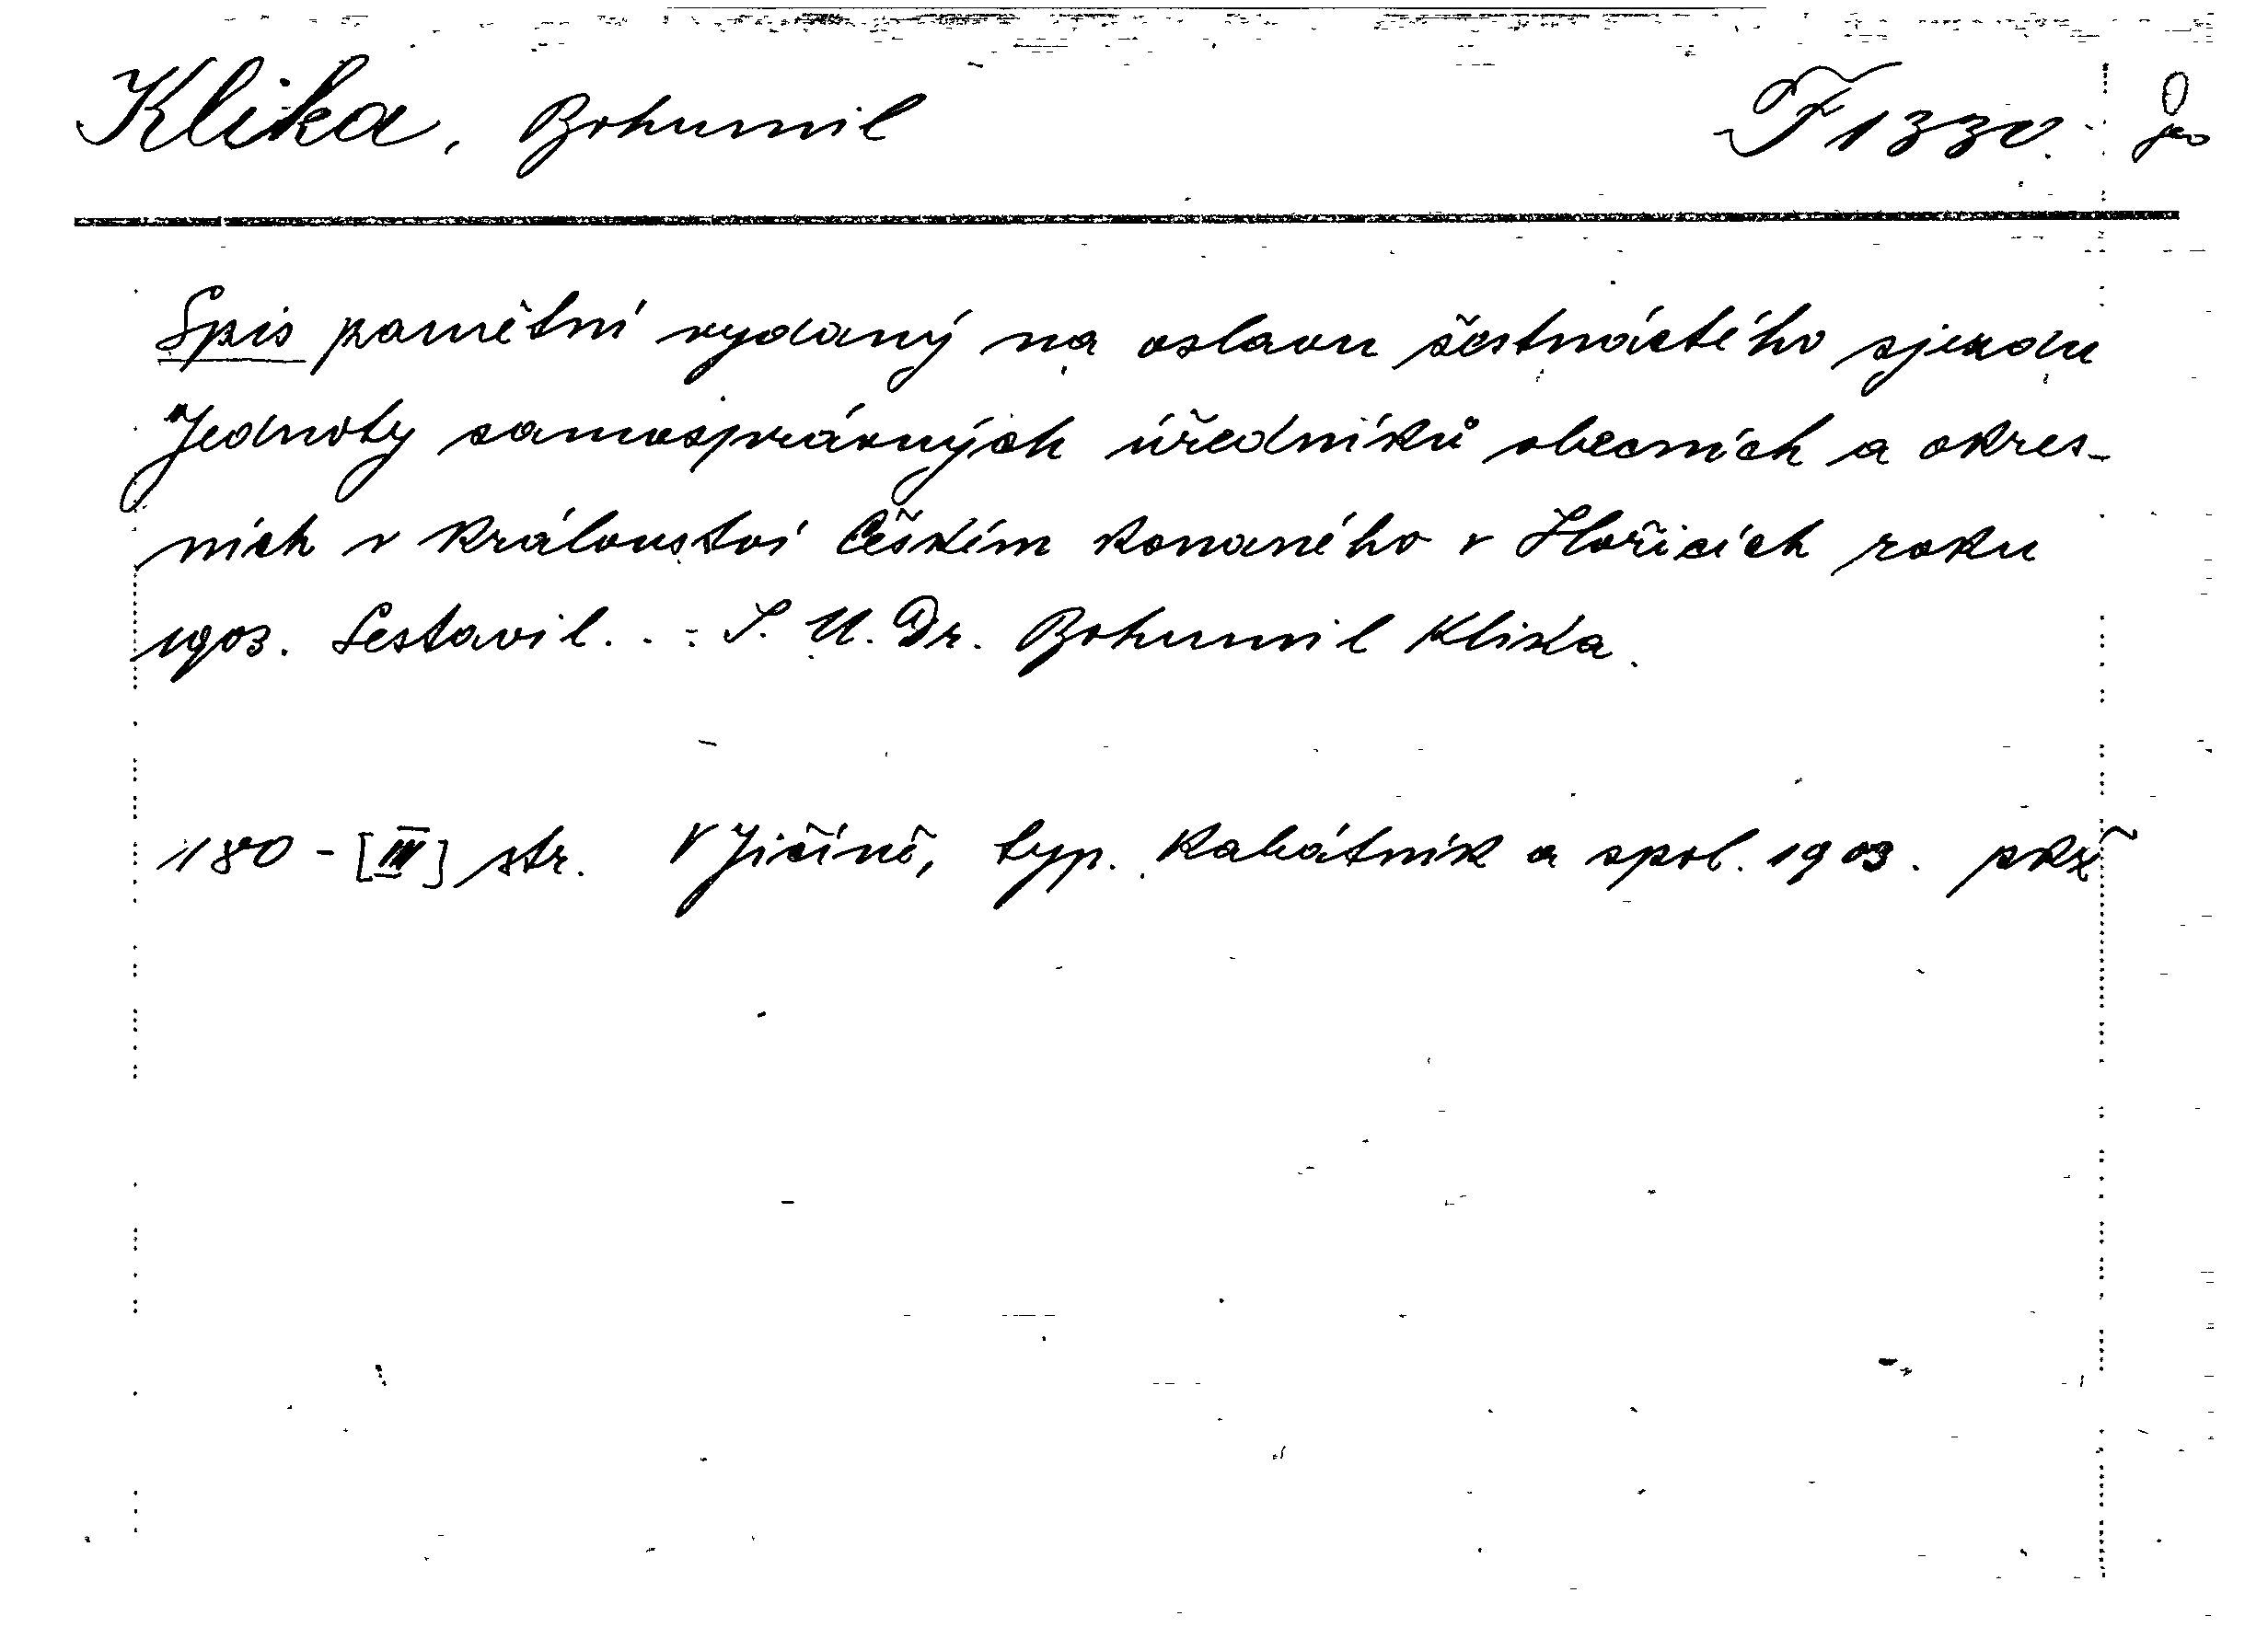 Klika, Bohumil F 1330.
Spis pamětní vydaný na oslavu šestnáctého sjezdu
Jednoty samosprávných úředníků obecních a okres-
ních v království Českém konaného v Hořicích roku
1903. Sestavil. . : J. U. Dr. Bohumil Klika.
180 - [III] str. V Jičíně, typ. Kabátník a spol. 1903.